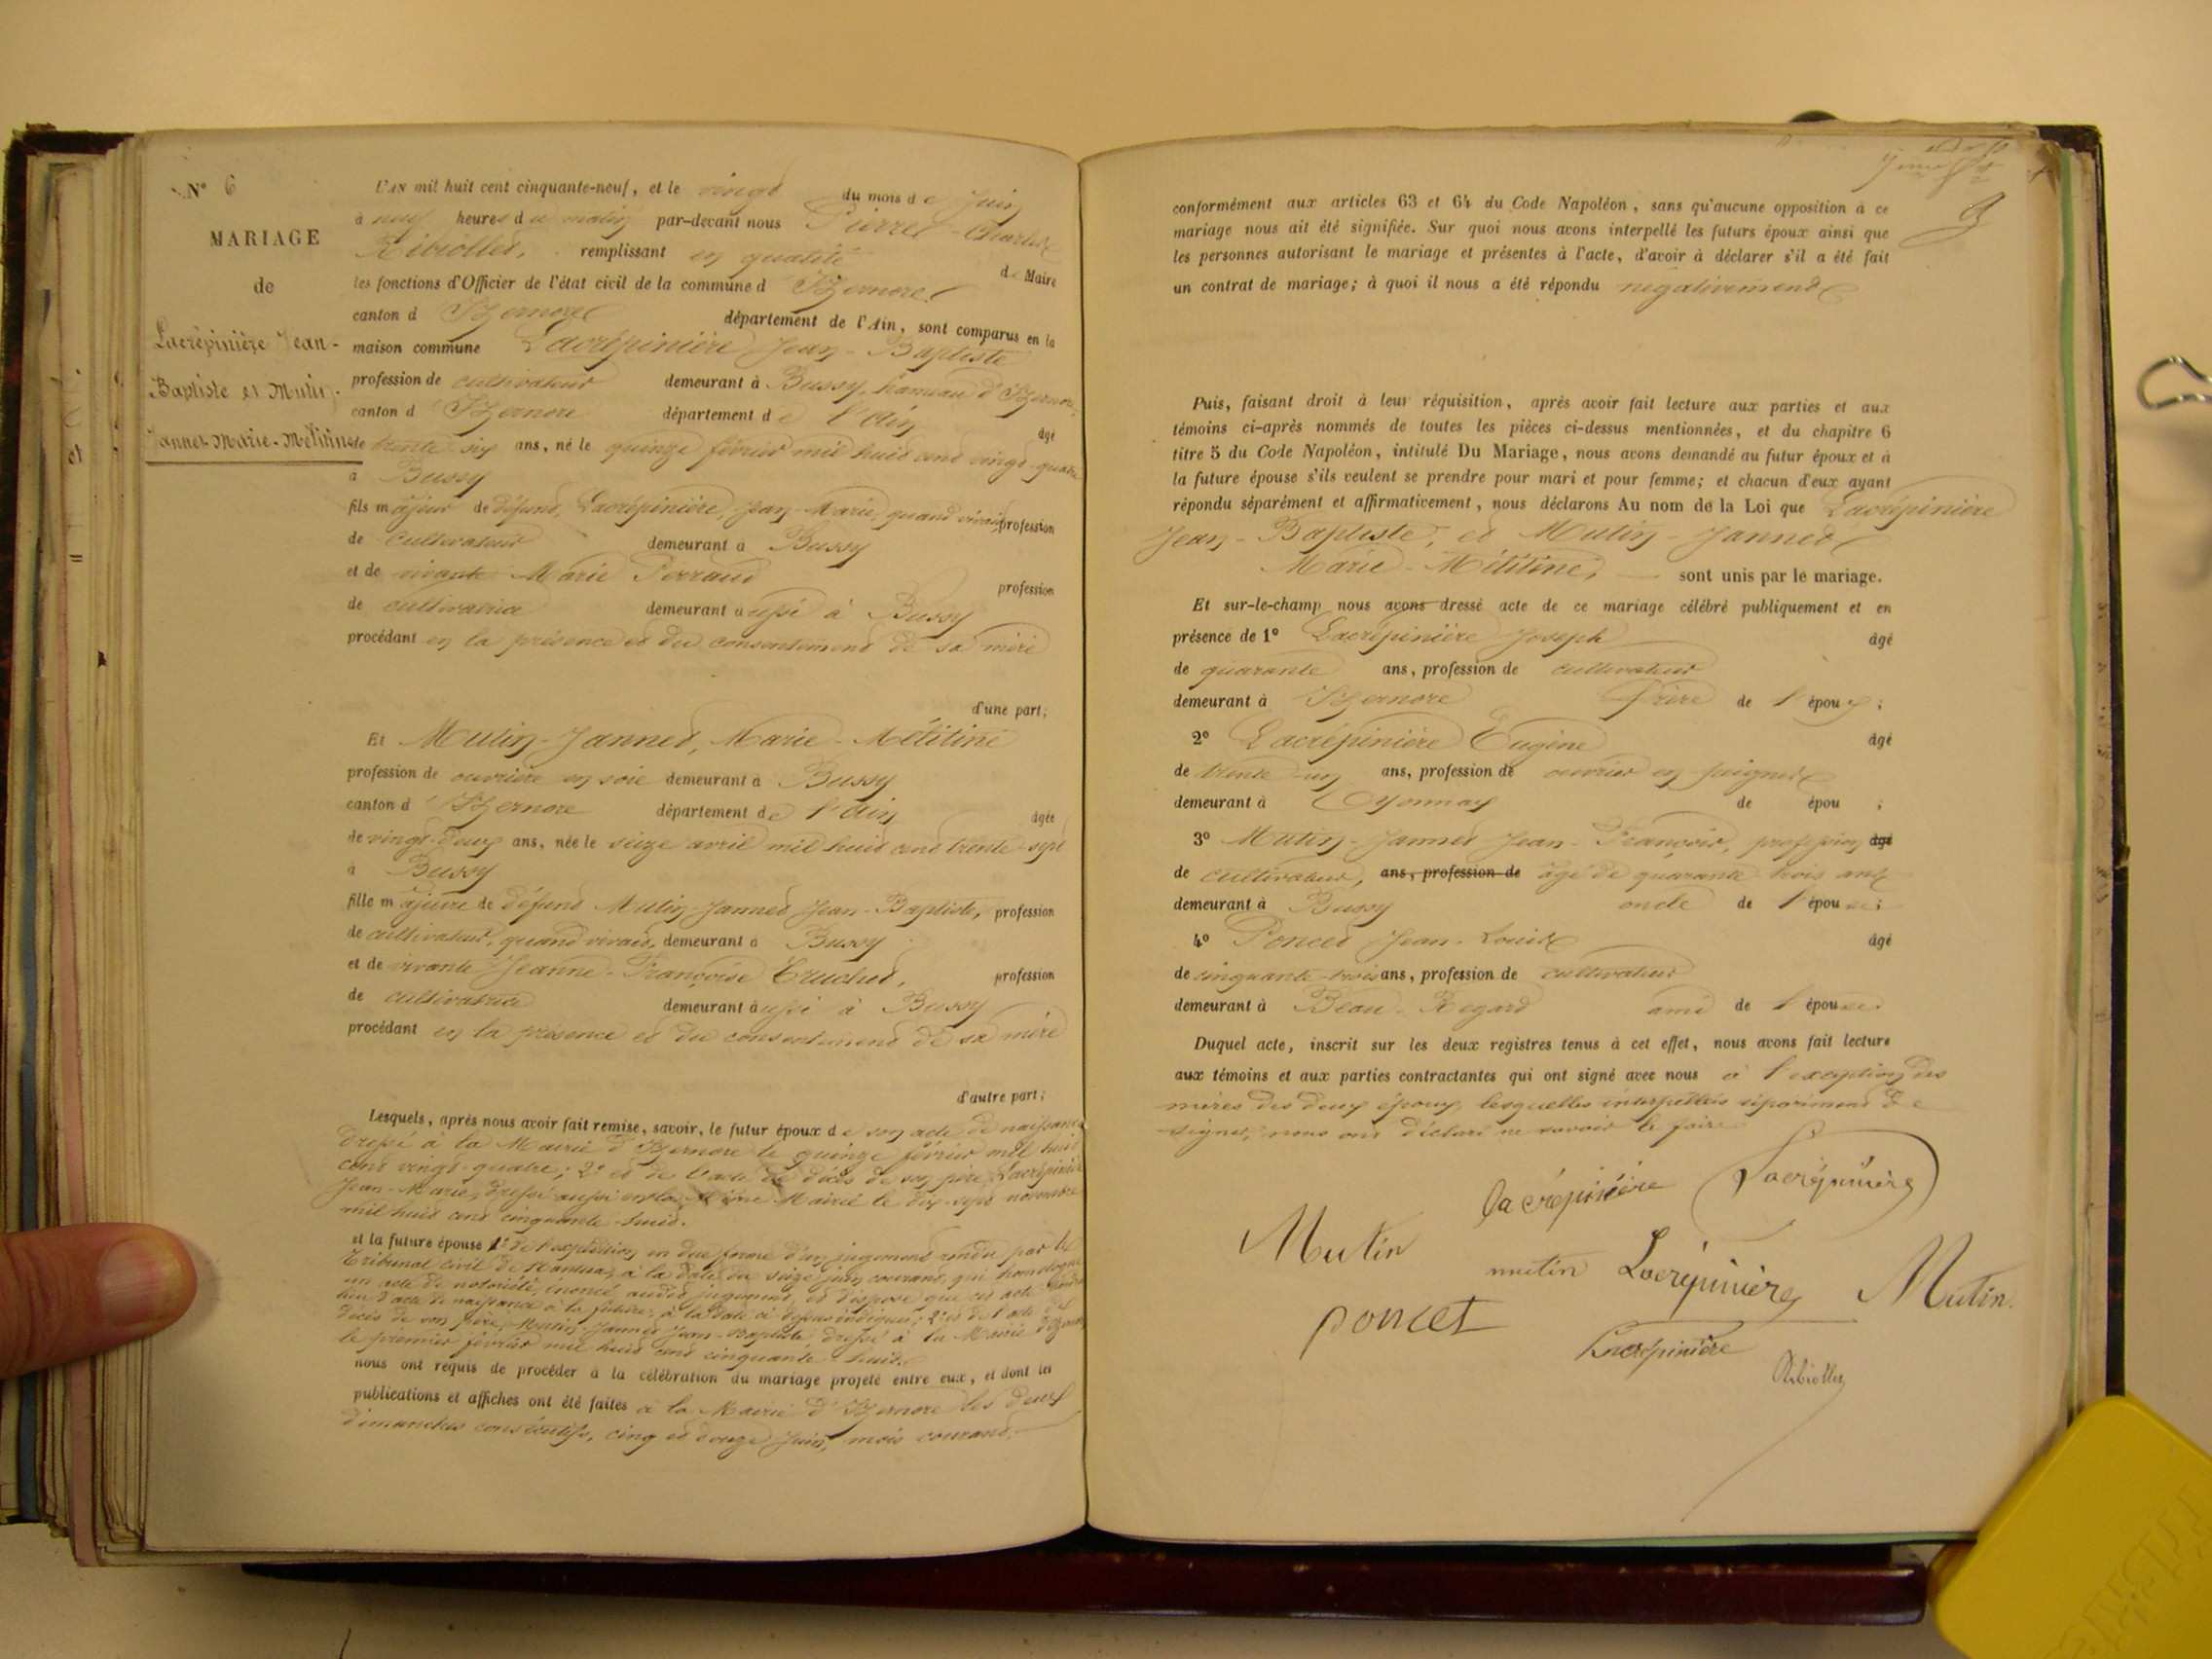 N° 6
MARIAGE
de
Lacrépinière Jean-
Baptiste et Mutin-
Jannet Marie-Mélitine
L'AN mil huit cent cinquante-neuf, et le vingt du mois de Juin
à neuf heures du matin par-devant nous Pierre-Charles
Ribiollet, remplissant en qualité de Maire
les fonctions d'Officier de l'état civil de la commune d'Izernore
canton d'Izernore département de l'Ain, sont comparus en la
maison commune Lacrépinière Jean-Baptiste
profession de cultivateur demeurant à Bussy, hameau d'Izernore,
canton d'Izernore département de l'Ain âgé
de trente-six ans, né le quinze février mil huit cent vingt-quatre
à Bussy
fils majeur de défunt Lacrépinière, Jean-Marie, quand vivait profession
de Cultivateur demeurant à Bussy
et de vivante Marie Perraud profession
de cultivatrice demeurant aussi à Bussy
procédant en la présence et du consentement de sa mère
d'une part;
Et Mutin-Jannet, Marie-Mélitine
profession de ouvrière en soie demeurant à Bussy
canton d'Izernore département de l'Ain âgée
de vingt-deux ans, née le seize avril mil huit cent trente-sept
à Bussy
fille majeure de défunt Mutin-Jannet Jean-Baptiste, profession
de cultivateur, quand vivait, demeurant à Bussy
et de vivante Jeanne-Françoise Cruchet, profession
de cultivatrice demeurant aussi à Bussy
procédant en la présence et du consentement de sa mère
d'autre part;
Lesquels, après nous avoir fait remise, savoir, le futur époux de son acte de naissance
dressé à la Mairie d'Izernore le quinze février mil huit
cent vingt-quatre; 2° et de l'acte de décès de son père Lacrépinière
Jean-Marie, dressé aussi en la même Mairie le dix-sept novembre
mil huit cent cinquante-huit.
et la future épouse 1° de l'expédition en due forme d'un jugement rendu par le
Tribunal civil de Nantua, à la date du seize juin courant, qui homologue
un acte de notoriété, énoncé audit jugement, et dispose que cet acte tiendra
lieu d'acte de naissance à la future, à la date ci-dessus indiquée; 2° et de l'acte de
décès de son père, Mutin-Jannet Jean-Baptiste dressé à la Mairie d'Izernore
le premier février mil huit cent cinquante-huit.
nous ont requis de procéder à la célébration du mariage projeté entre eux, et dont les
publications et affiches ont été faites à la Mairie d'Izernore les deux
dimanches consécutifs, cinq et douze Juin, mois courant,
conformément aux articles 63 et 64 du Code Napoléon, sans qu'aucune opposition à ce
mariage nous ait été signifiée. Sur quoi nous avons interpellé les futurs époux ainsi que
les personnes autorisant le mariage et présentes à l'acte, d'avoir à déclarer s'il a été fait
un contrat de mariage; à quoi il nous a été répondu négativement
Puis, faisant droit à leur réquisition, après avoir fait lecture aux parties et aux
témoins ci-après nommés de toutes les pièces ci-dessus mentionnées, et du chapitre 6
titre 5 du Code Napoléon, intitulé Du Mariage, nous avons demandé au futur époux et à
la future épouse s'ils veulent se prendre pour mari et pour femme; et chacun d'eux ayant
répondu séparément et affirmativement, nous déclarons Au nom de la Loi que Lacrépinière
Jean-Baptiste, et Mutin-Jannet
Marie-Mélitine, sont unis par le mariage.
Et sur-le-champ nous avons dressé acte de ce mariage célébré publiquement et en
présence de 1° Lacrépinière Joseph âgé
de quarante ans, profession de cultivateur
demeurant à Izernore frère de l'époux;
2° Lacrépinière Eugène âgé
de trente-un ans, profession de ouvrier en peignes
demeurant à Oyonnax de épou ;
3° Mutin-Jannet Jean-François, profession âgé
de cultivateur, ans, profession de âgé de quarante-trois ans
demeurant à Bussy oncle de l'épouse;
4° Poncet Jean-Louis âgé
de cinquante-trois ans, profession de cultivateur
demeurant à Beau-Regard ami de l'épouse.
Duquel acte, inscrit sur les deux registres tenus à cet effet, nous avons fait lecture
aux témoins et aux parties contractantes qui ont signé avec nous à l'exception des
mères des deux époux, lesquelles interpellées séparément de
signer, nous ont déclaré ne savoir le faire
la crépinière Lacrépinière
Mutin mutin Lacrépinière Mutin
poncet Lacrépinière
Ribiollet